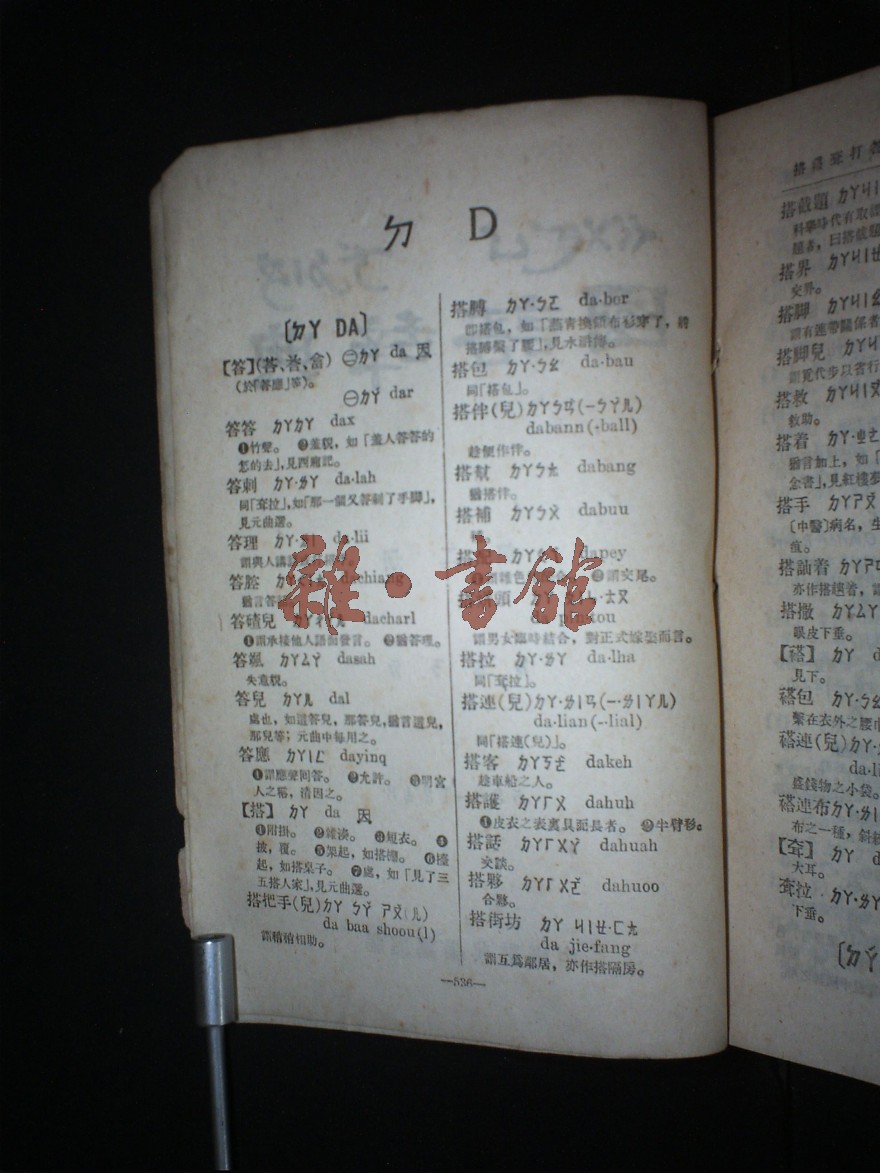 ㄉ D
〔ㄉㄚ DA〕
[答](荅、
㊀ㄉㄚ da 因
(於「答應」等)。
㊁ㄉㄚˊ dar
答答 ㄉㄚㄉㄚ dax
❶竹聲。 ❷羞貌,如「羞人答答的
怎的去」,見西廂記。
答剌 ㄉㄚ·ㄌㄚ da·lah
同「耷拉」,如「那一個又答剌了手脚」,
見元曲選。
答理 da·lii
謂與人
答腔 dachiang
猶言答
答碴兒 dacharl
❶謂承接他人語而發言。 ❷猶答理。
答颯 ㄉㄚㄙㄚˋ dasah
失意貌。
答兒 ㄉㄚㄦ dal
處也,如這答兒,那答兒,猶言這兒,
那兒等;元曲中每用之。
答應 ㄉㄚㄧㄥ dayinq
❶謂應聲回答。 ❷允許。 ❸明宮
人之稱,清因之。
[搭] ㄉㄚ da 因
❶附掛。 ❷雜湊。 ❸短衣。 ❹
披,覆。 ❺架起,如搭棚。 ❻擡
起,如搭桌子。 ❼處,如「見了三
五搭人家」,見元曲選。
搭把手(兒)ㄉㄚ ㄅㄚˇ ㄕㄡˇ(ㄦ)
da baa shoou(l)
謂稍稍相助。
搭膊 ㄉㄚ·ㄅㄛ da·bor
即搭包,如「燕青換領布衫穿了,將
搭膊繫了腰」,見水滸傳。
搭包 ㄉㄚ·ㄅㄠ da·bau
同「搭包」。
搭伴(兒)ㄉㄚㄅㄢˋ(ㄧㄅㄚˋㄦ)
dabann(-ball)
趁便作伴。
搭幫 ㄉㄚㄅㄤ dabang
猶搭伴。
搭補 ㄉㄚㄅㄨˇ dabuu
dapey
❷謂交尾。
頭 ·ㄊㄡ
謂男女臨時結合,對正式嫁娶而言。
搭拉 ㄉㄚ·ㄌㄚ da·lha
同「耷拉」。
搭連(兒)ㄉㄚ·ㄌㄧㄢ(ㄧ·ㄌㄧㄚㄦ)
da·lian(--lial)
同「褡連(兒)」。
搭客 ㄉㄚㄎㄜˋ dakeh
趁車船之人。
搭護 ㄉㄚㄏㄨˋ dahuh
❶皮衣之表裏具而長者。 ❷半臂衫。
搭話 ㄉㄚㄏㄨㄚˋ dahuah
交談。
搭夥 ㄉㄚㄏㄨㄛˇ dahuoo
合夥。
搭街坊 ㄉㄚ ㄐㄧㄝ·ㄈㄤ
da jie·fang
謂互爲鄰居,亦作搭隔房。
—536—
搭截題 ㄉㄚㄐㄧ
科舉時代有取
題者,曰搭截題
搭界 ㄉㄚㄐㄧㄝ
交界。
搭脚 ㄉㄚㄐㄧㄠ
謂有連帶關係者
搭脚兒 ㄉㄚㄐㄧ
謂覓代步以省行
搭救 ㄉㄚㄐㄧㄡ
救助。
搭着 ㄉㄚ·ㄓㄜ
猶言加上,如「
念書」,見紅樓夢
搭手 ㄉㄚㄕㄡˇ
〔中醫〕病名,生
疽。
搭訕着 ㄉㄚㄕㄢ
亦作搭趄着,謂
搭撒 ㄉㄚㄙㄚ
眼皮下垂。
[褡] ㄉㄚ d
見下。
褡包 ㄉㄚ·ㄅㄠ
繫在衣外之腰巾
褡連(兒)ㄉㄚ·
da·li
盛錢物之小袋。
褡連布ㄉㄚ·ㄌㄧ
布之一種,斜紋
[耷] ㄉㄚ d
大耳。
耷拉 ㄉㄚ·ㄌㄚ
下垂。
〔ㄉㄚˊ
雜·書館